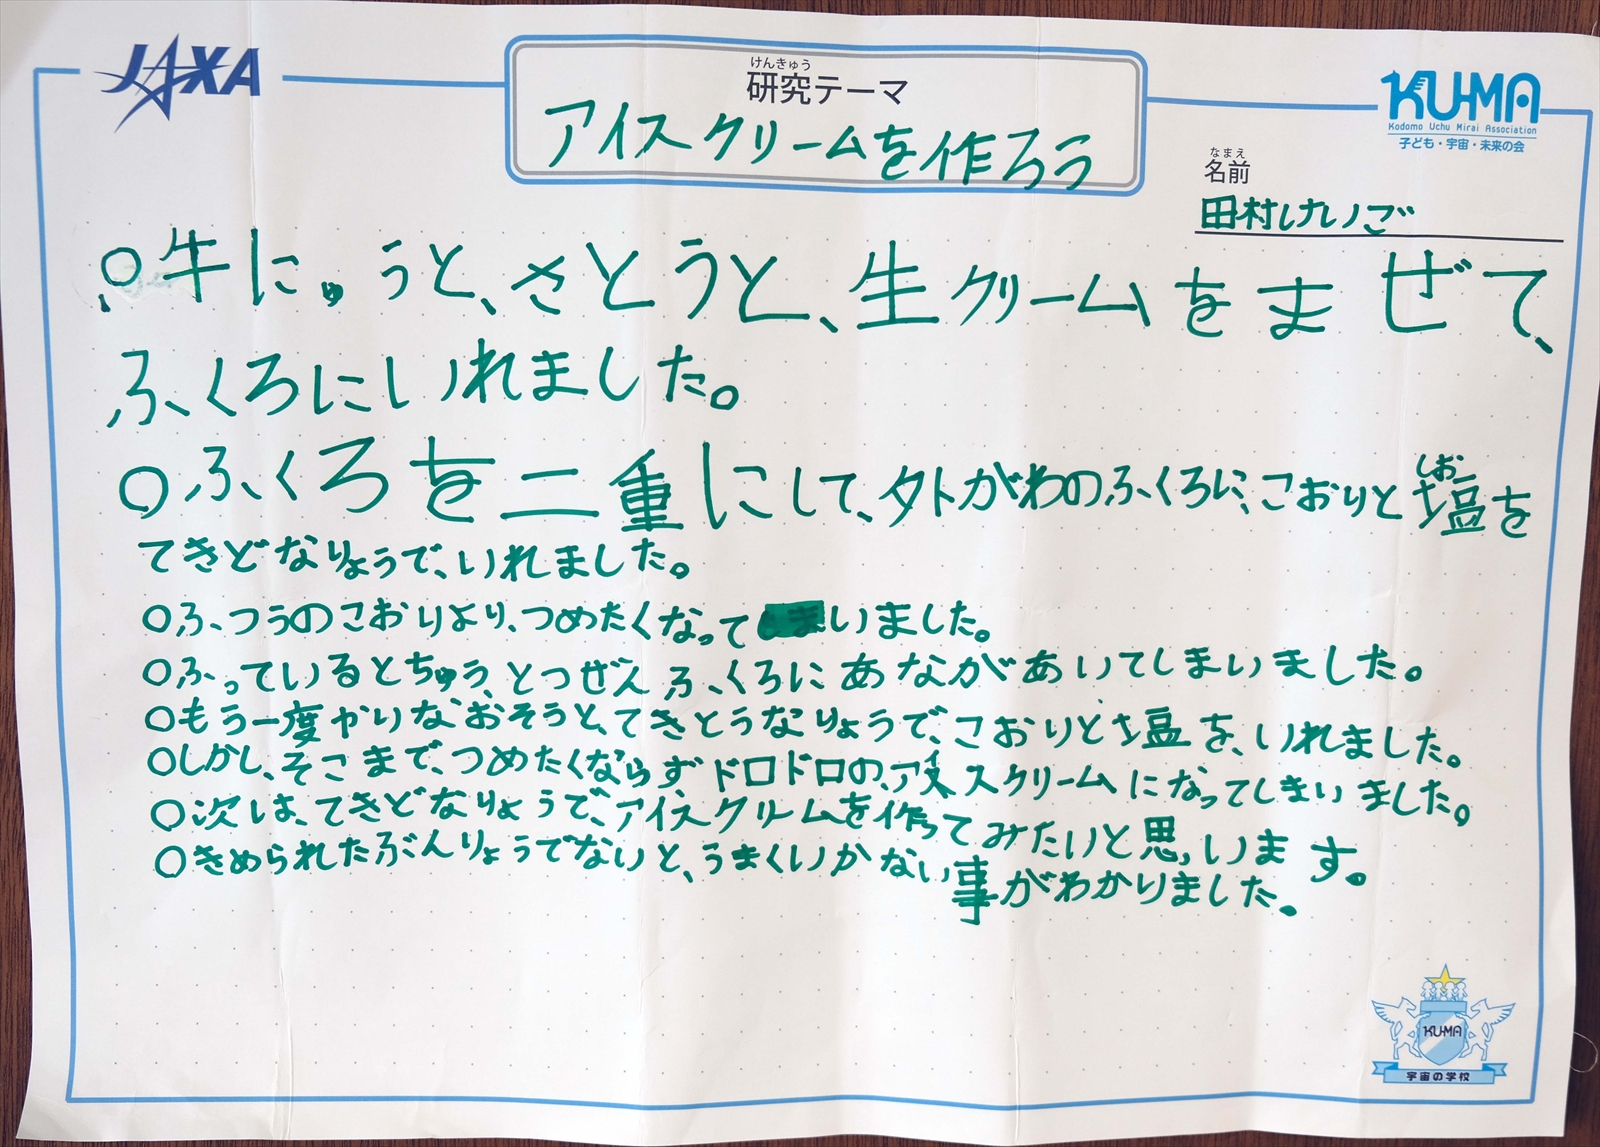 JAXA
けんきゅう
研究テーマ
アイスクリームを作ろう
KU-MA
Kodomo Uchu Mirai Association
子ども・宇宙・未来の会
なまえ
名前
田村
○牛にゅうと、さとうと、生クリームをまぜて、
ふくろにいれました。
しお
○ふくろを二重にして、外がわのふくろに、こおりと塩を
てきどなりょうで、いれました。
○ふつうのこおりより、つめたくなっていました。
○ふっているとちゅう、とつぜんふくろにあながあいてしまいました。
○もう一度やりなおそうと、てきとうなりょうで、こおりと塩を、いれました。
○しかし、そこまで、つめたくならずドロドロの、アイスクリームになってしまいました。
○次は、てきどなりょうで、アイスクリームを作ってみたいと思います。
○きめられたぶんりょうでないと、うまくいかない
事がわかりました。
KU-MA
宇宙の学校